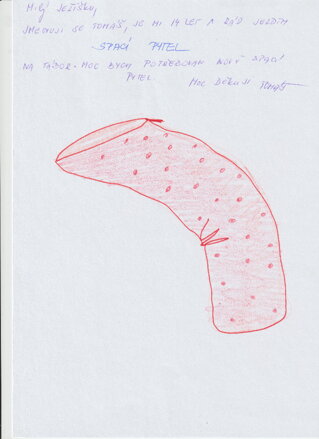 Milý JEŽÍŠKU,
JMENUJI SE TOMÁŠ, JE MI 14 LET A RÁD JEZDÍM
SPACÍ PYTEL
NA TÁBOR. MOC BYCH POTŘEBOVAL NOVÝ SPACÍ
PYTEL.
MOC DĚKUJI Tomáš